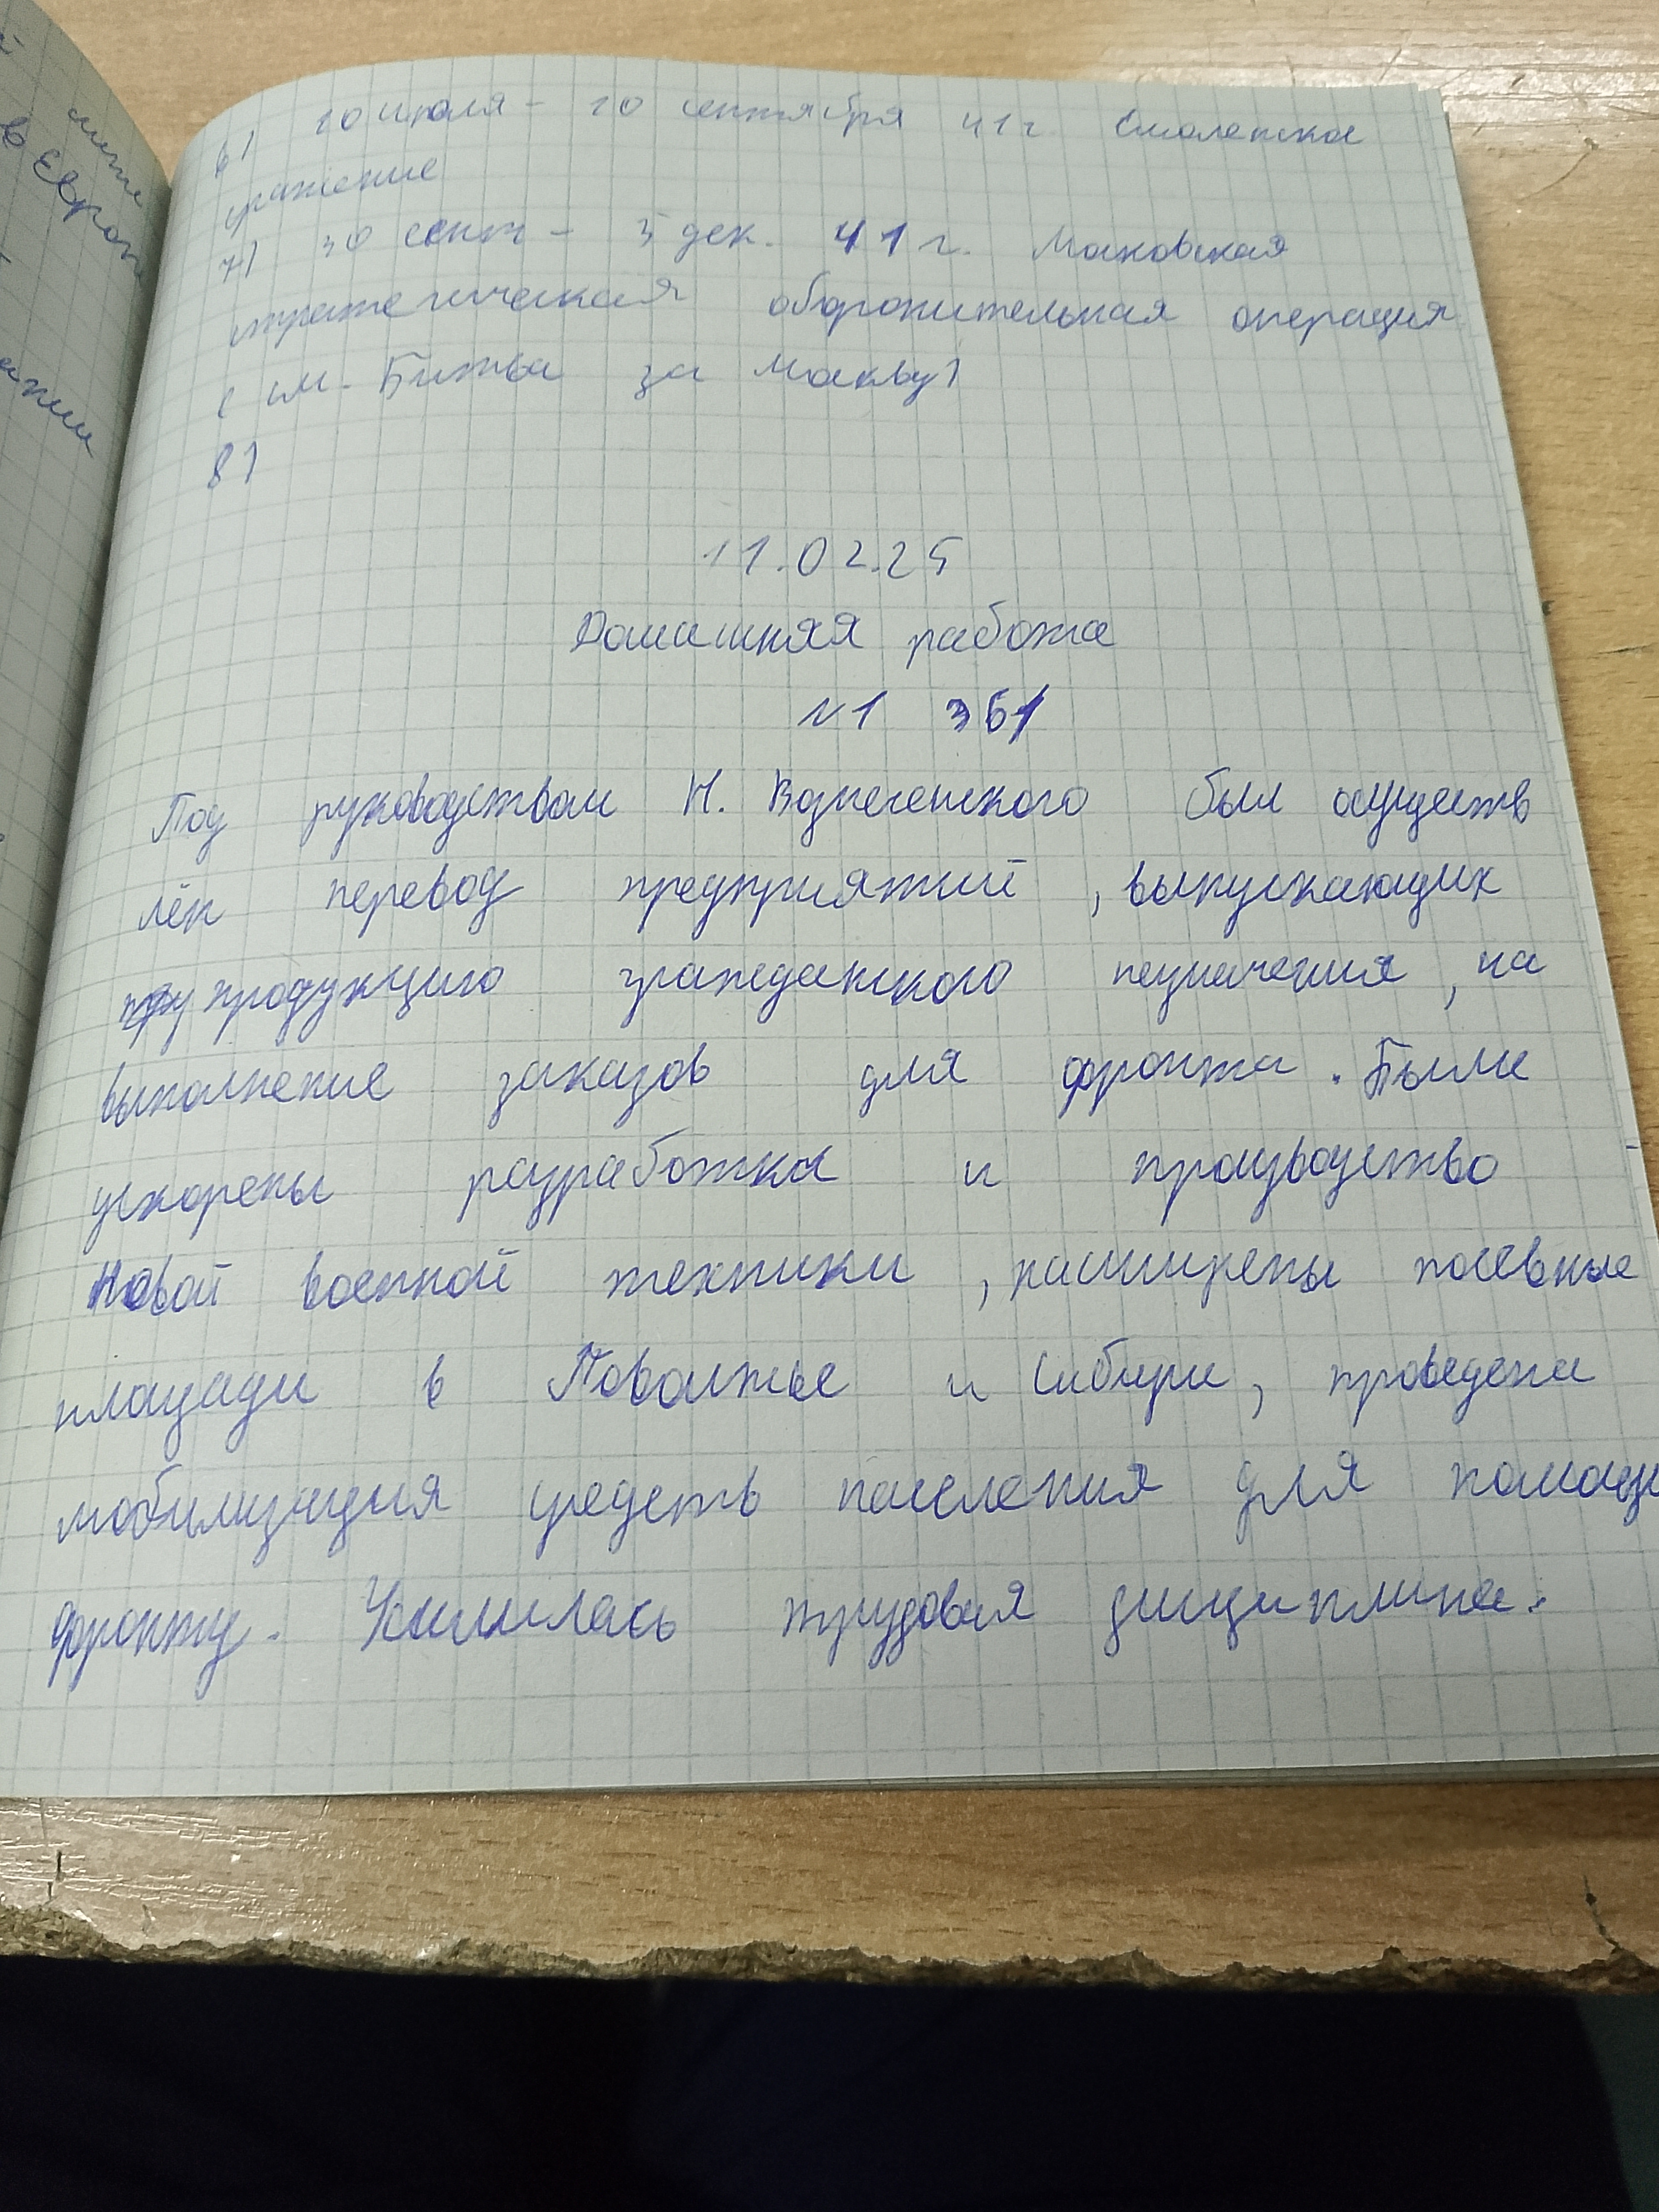 6) 10 июля - 10 сентября 41 г Смоленское
сражение
7) 30 сент - 5 дек. 41 г. Московская
стратегическая оборонительная операция
( см. Битва за Москву)
8)
11.02.25
Домашняя работа
№1 361
Под руководством Н. Вознесенского был осуществ
лён перевод предприятий, выпускающих
продукцию гражданского назначения, на
выполнение заказов для фронта. Были
ускорены разработка и производство
новой военной техники, расширены посевные
площади в Поволжье и Сибири, проведена
мобилизация средств населения для помощи
фронту. Усилилась трудовая дисциплина.